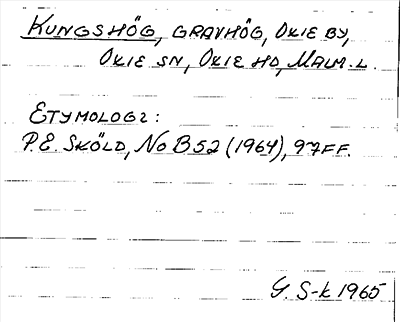 KUNGSHÖG, GRAVHÖG, OXIE BY,
OXIE SN, OXIE HD, MALM. L.
ETYMOLOGI:
P.E. SKÖLD, NoB 52 (1964), 97FF.
G. S-k 1965